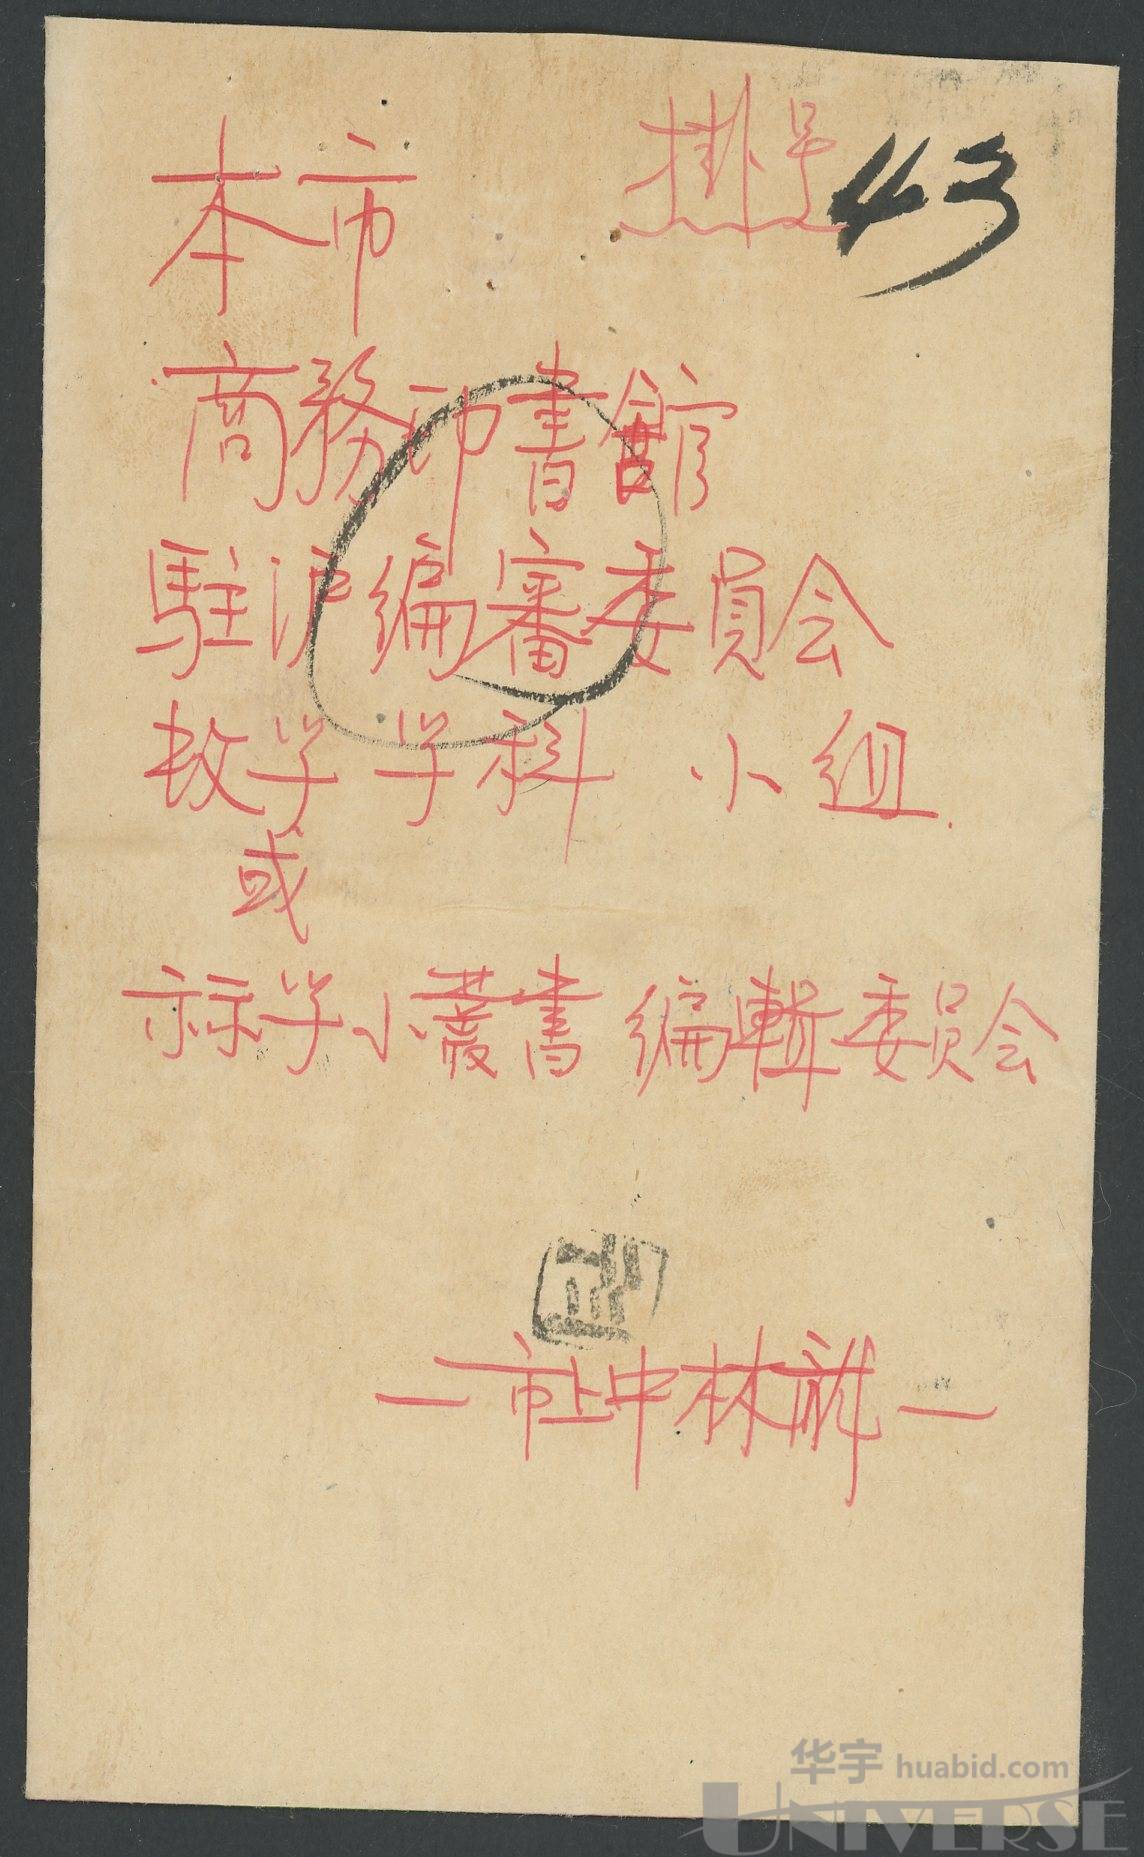 掛号
43
本市
商務印書館
駐沪編審委員会
数学学科 小組
或
小叢書 編輯委員会
一市北中林
华宇 huabid.com
UNIVERSE